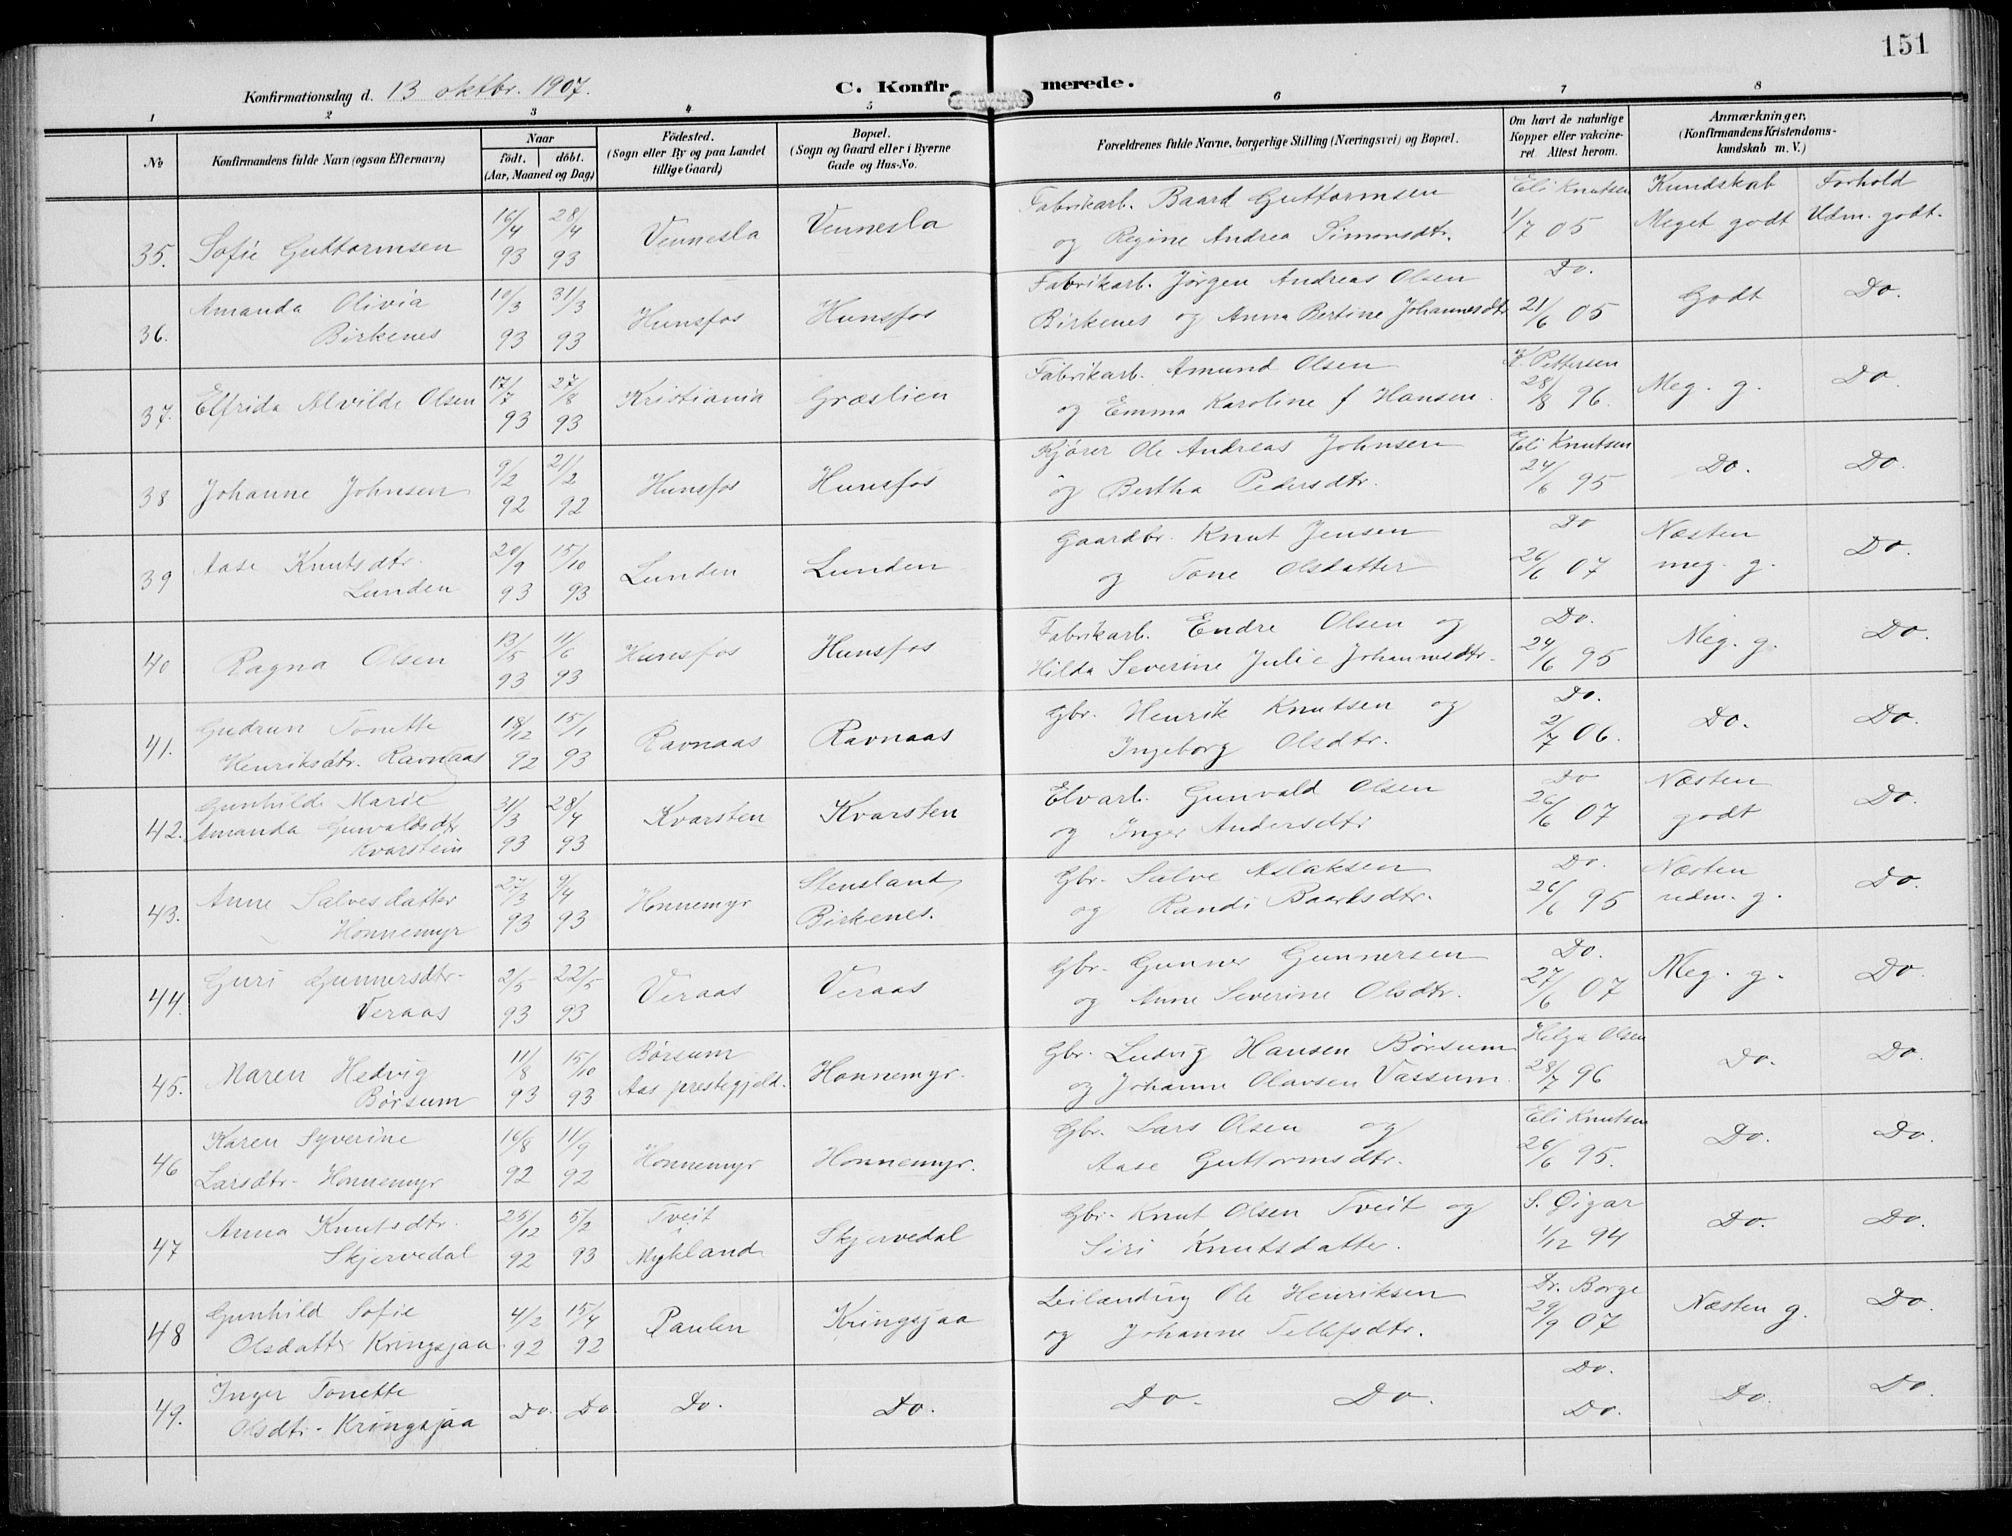 151
Konfirmationsdag d. 13 oktbr. 1907.
C. Konfirmerede.
1 2 3 4 5 6 7 8
No
Konfirmandens fulde Navn (ogsaa Efternavn)
Naar
født. døbt.
(Aar, Maaned og Dag)
Fødested.
(Sogn eller By og paa Landet
tillige Gaard)
Bopæl.
(Sogn og Gaard eller i Byerne
Gade og Hus-No.
Forældrenes fulde Navne, borgerlige Stilling (Næringsvei) og Bopæl.
Om havt de naturlige
Kopper eller vakcine-
ret. Attest herom.
Anmærkninger,
(Konfirmandens Kristendoms-
kundskab m. V.)
Kundskab Forhold
35. Sofie Guttormsen 16/4 93 28/4 93 Vennesla Vennesla
Fabrikarb. Baard Guttormsen
og Regine Andrea Simonsdtr.
Eli Knutsen
1/7 05 Meget godt Udm. godt.
36. Amanda Olivia
Birkenes
10/3 93 31/3 93 Hunsfos Hunsfos
Fabrikarb. Jørgen Andreas Olsen
Birkenes og Anna Bertine Johannesdtr
Do.
21/6 05 Godt Do.
37. Elfrida Alvilde Olsen 17/7 93 27/8 93 Kristiania Græslien
Fabrikarb. Amund Olsen
og Emma Karoline f Hansen.
K. Pettersen
28/8 96. Meg. g. Do.
38 Johanne Johnsen 9/2 92 21/2 92 Hunsfos Hunsfos
Kjører Ole Andreas Johnsen
og Bertha Pedersdtr.
Eli Knutsen
24/6 95 Do. Do.
39 Aase Knutsdtr.
Lunden
20/9 93 15/10 93 Lunden Lunden
Gaardbr. Knut Jensen
og Tone Olsdatter
Do
26/6 07 Næsten
meg. g. Do.
40 Ragna Olsen 13/5 93 11/6 93 Hunsfos Hunsfos
Fabrikarb. Endre Olsen og
Hilda Severine Julie Johannesdtr.
Do.
24/6 95 Meg. g. Do.
41. Gudrun Tonette
Henriksdtr. Ravnaas
18/12 92 15/1 93 Ravnaas Ravnaas
Gbr. Henrik Knutsen og
Ingeborg Olsdtr.
Do.
2/7 06. Do. Do.
42. Gunhilde Marie
Amanda Gunvaldsdtr
Kvarstein
31/3 93 28/4 93 Kvarsten Kvarsten
Elvarb. Gunvald Olsen
og Inger Andersdtr
Do
26/6 07 Næsten
godt Do.
43. Anne Salvesdatter
Honnemyr
27/3 93 9/4 93 Honnemyr Stensland
Birkenes.
Gbr. Salve Aslaksen
og Randi Baardsdtr.
Do.
26/6 95 Næsten
udm. g. Do.
44. Guri Gunnersdtr.
Veraas
2/5 93 22/5 93 Veraas Veraas
Gbr. Gunner Gunnersen
og Anne Severine Olsdtr.
Do.
27/6 07 Meg. g. Do.
45. Maren Hedvig
Børsum
11/8 93 15/10 93 Børsum
Aas prestegjeld. Honnemyr.
Gbr. Ludvig Hansen Børsum
og Johanne Olavsen Vassum
Helga Olsen
28/7 96 Do. Do.
46 Karen Syverine
Larsdtr. Honnemyr
16/8 92 11/9 92 Honnemyr Honnemyr.
Gbr. Lars Olsen og
Aase Guttormsdtr.
Eli Knutsen
26/6 95. Do. Do.
47 Anna Knutsdtr.
Skjervedal
25/12 92 5/2 93 Tveit
i
Mykland Skjervedal
Gbr. Knut Olsen Tveit og
Siri Knutsdatter.
S. Øigar
1/12 94 Do. Do.
48 Gunhild Sofie
Olsdatter Kringsjaa
4/2 92 15/4 92 Paulen Kringsjaa
Leilænding Ole Henriksen
og Johanne Tellefsdtr.
Dr. Borge
29/9 07 Næsten g. Do.
49. Inger Tonette
Olsdtr. Kringsjaa
Do. Do Do. Do.
Do. Do.
Do.
Do. Do. Do.